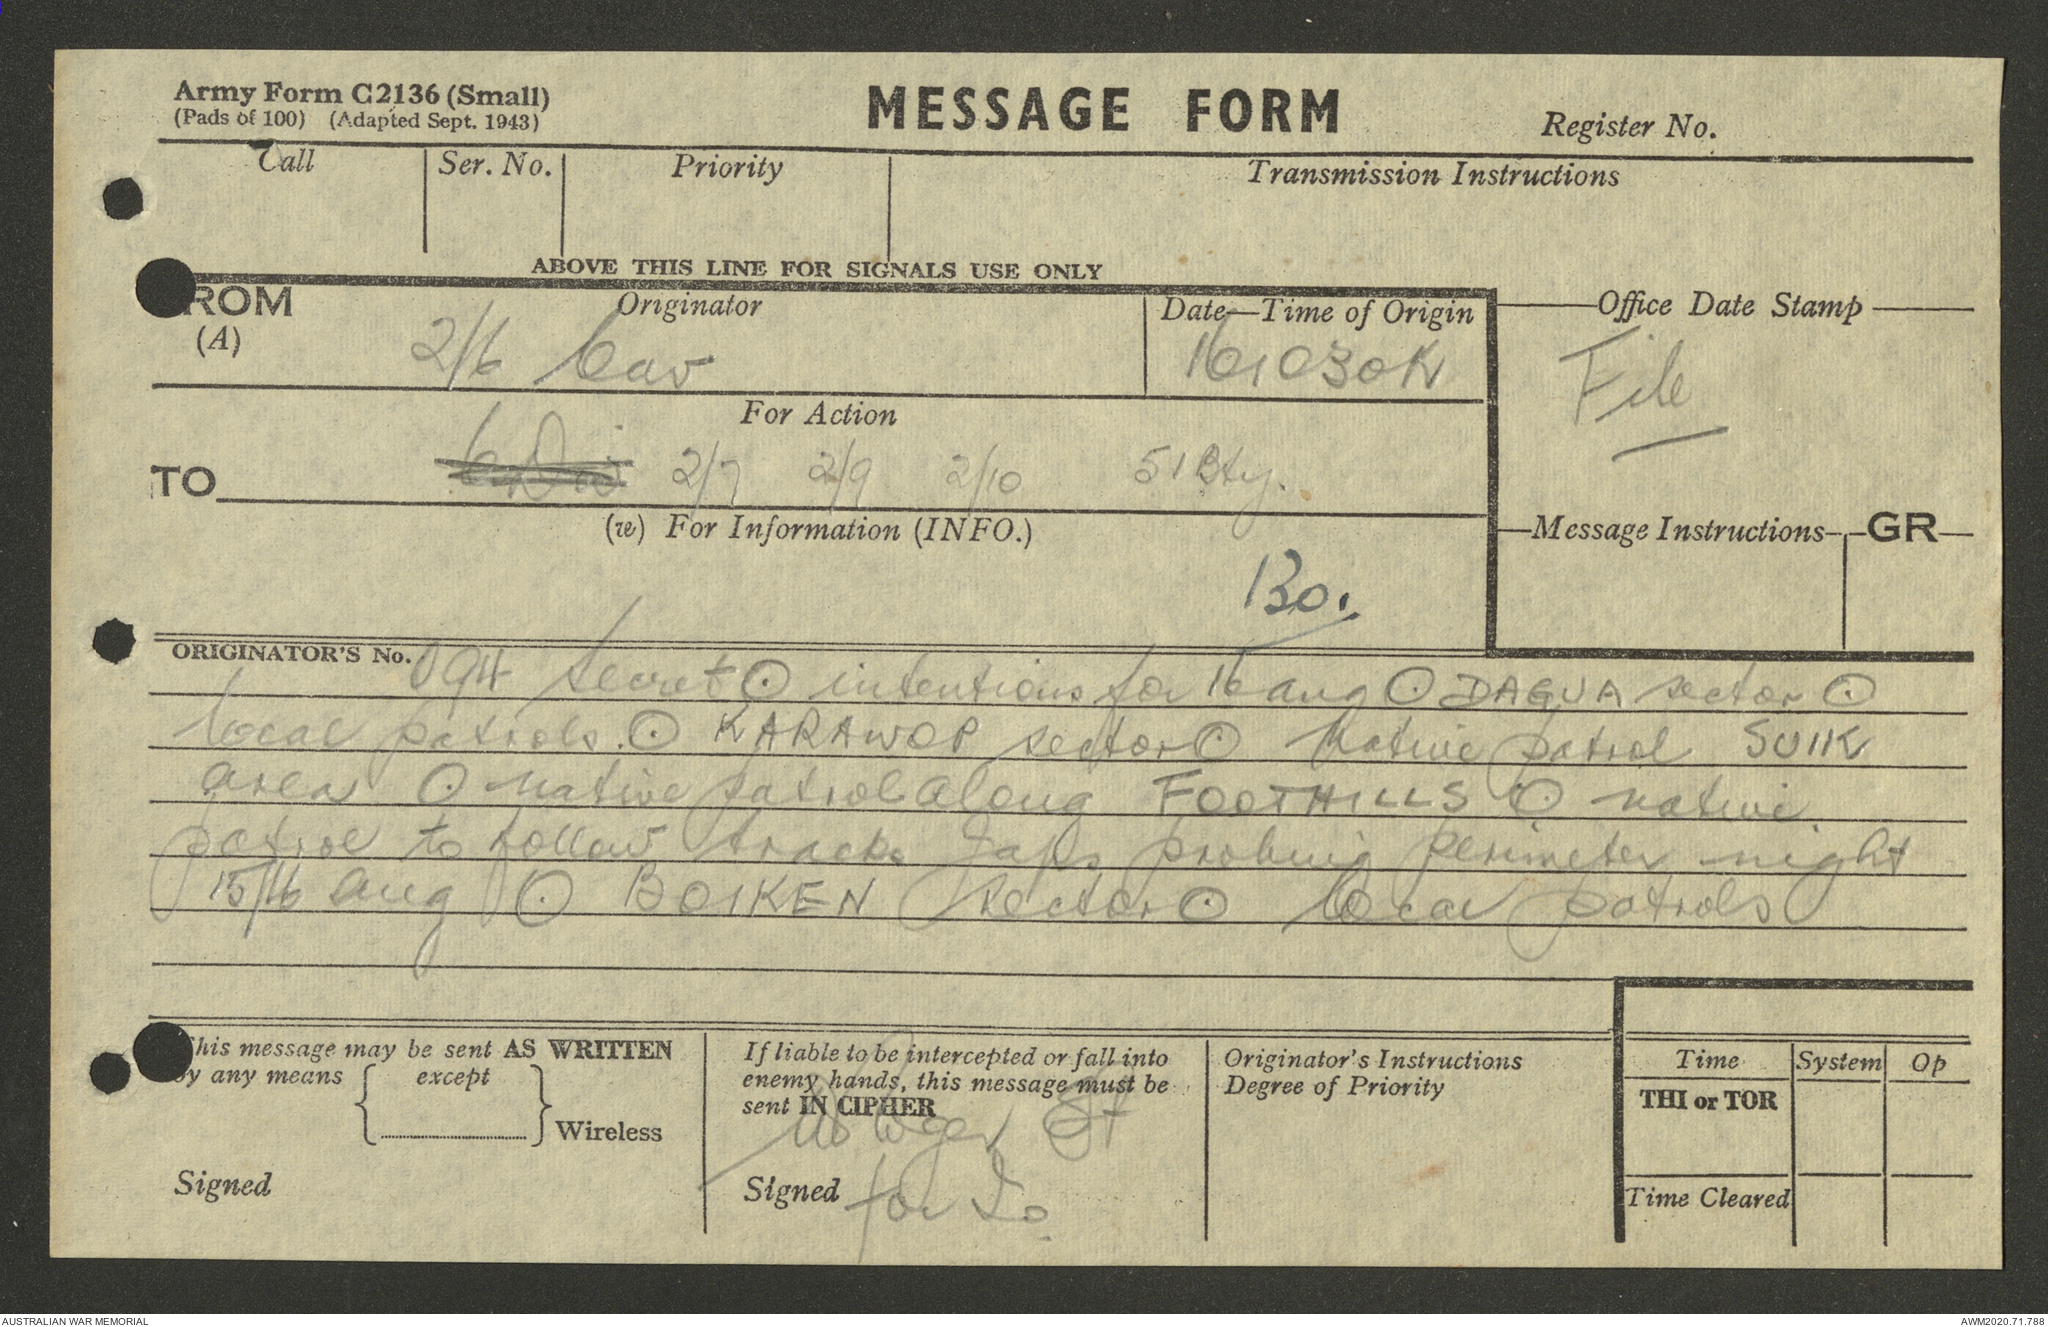 Army Form C2136 (Small)
(Pads of 100) (Adapted Sept. 1943)
MESSAGE FORM
Register No.
Call
Ser. No.
Priority
Transmission Instructions
ABOVE THIS LINE FOR SIGNALS USE ONLY
ROM
(A)
Originator
2/6 Cav
Date—Time of Origin
161030K
Office Date Stamp
File
For Action
TO
6 Div 2/7 2/9 2/10 51 Bty.
(w) For Information (INFO.)
Message Instructions
GR
ORIGINATOR'S No.
O94 Secret ⊙ intentions for 16 aug ⊙ DAGUA sector ⊙
local patrols. ⊙ KARAWOP sector ⊙ Native patrol SUIIK
area ⊙ native patrol along FOOTHILLS ⊙ native
patrol to follow tracks Japs probing perimeter night
15/16 aug ⊙ BOIKEN sector ⊙ local patrols
his message may be sent AS WRITTEN
y any means except
Wireless
Signed
If liable to be intercepted or fall into
enemy hands, this message must be
sent IN CIPHER
Lt
Signed for Io
Originator's Instructions
Degree of Priority
Time
System
Op
THI or TOR
Time Cleared
AUSTRALIAN WAR MEMORIAL
AWM2020.71.788